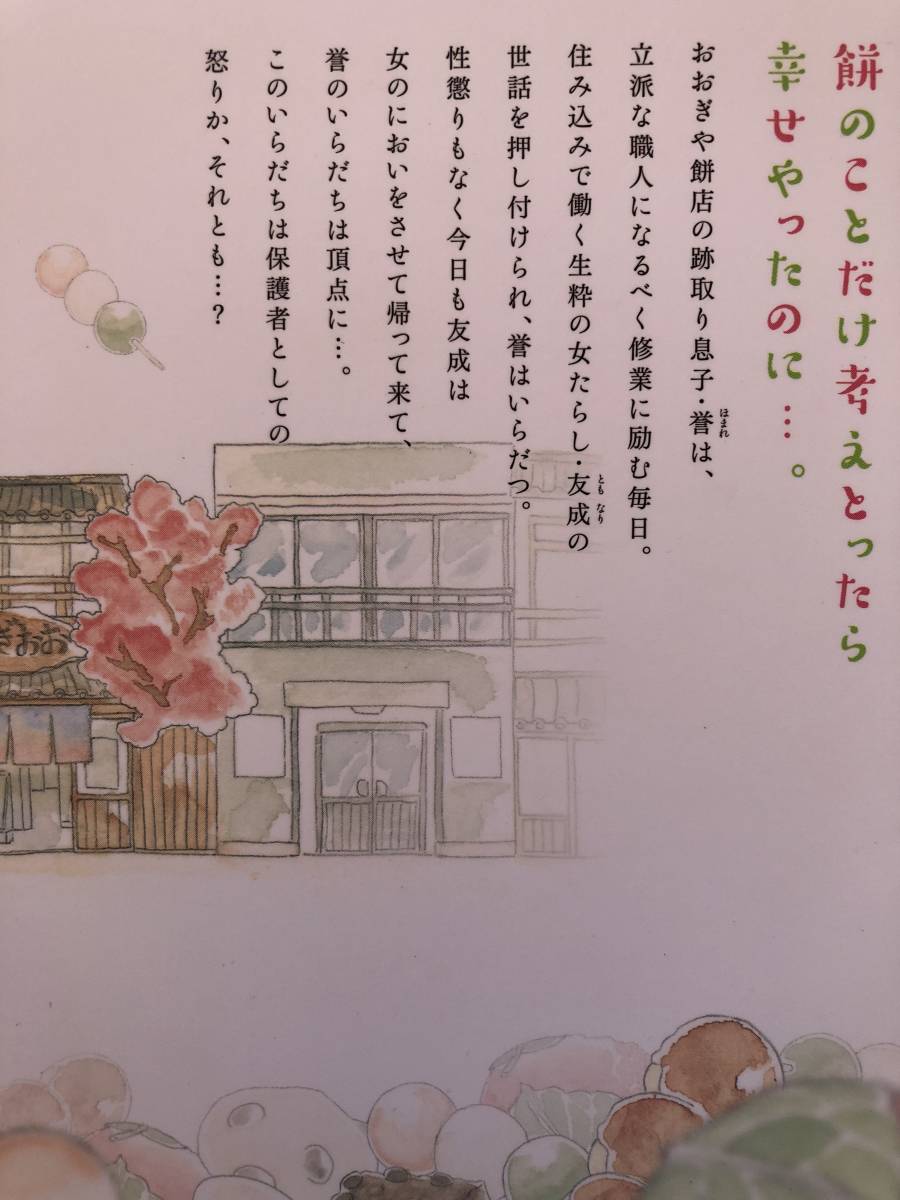 餅のことだけ考えとったら
幸せやったのに…。
おおぎや餅店の跡取り息子・誉は、
ほまれ
立派な職人になるべく修業に励む毎日。
住み込みで働く生粋の女たらし・友成の
ともなり
世話を押し付けられ、誉はいらだつ。
性懲りもなく今日も友成は
女のにおいをさせて帰って来て、
誉のいらだちは頂点に…。
このいらだちは保護者としての
怒りか、それとも…?
ぎおお